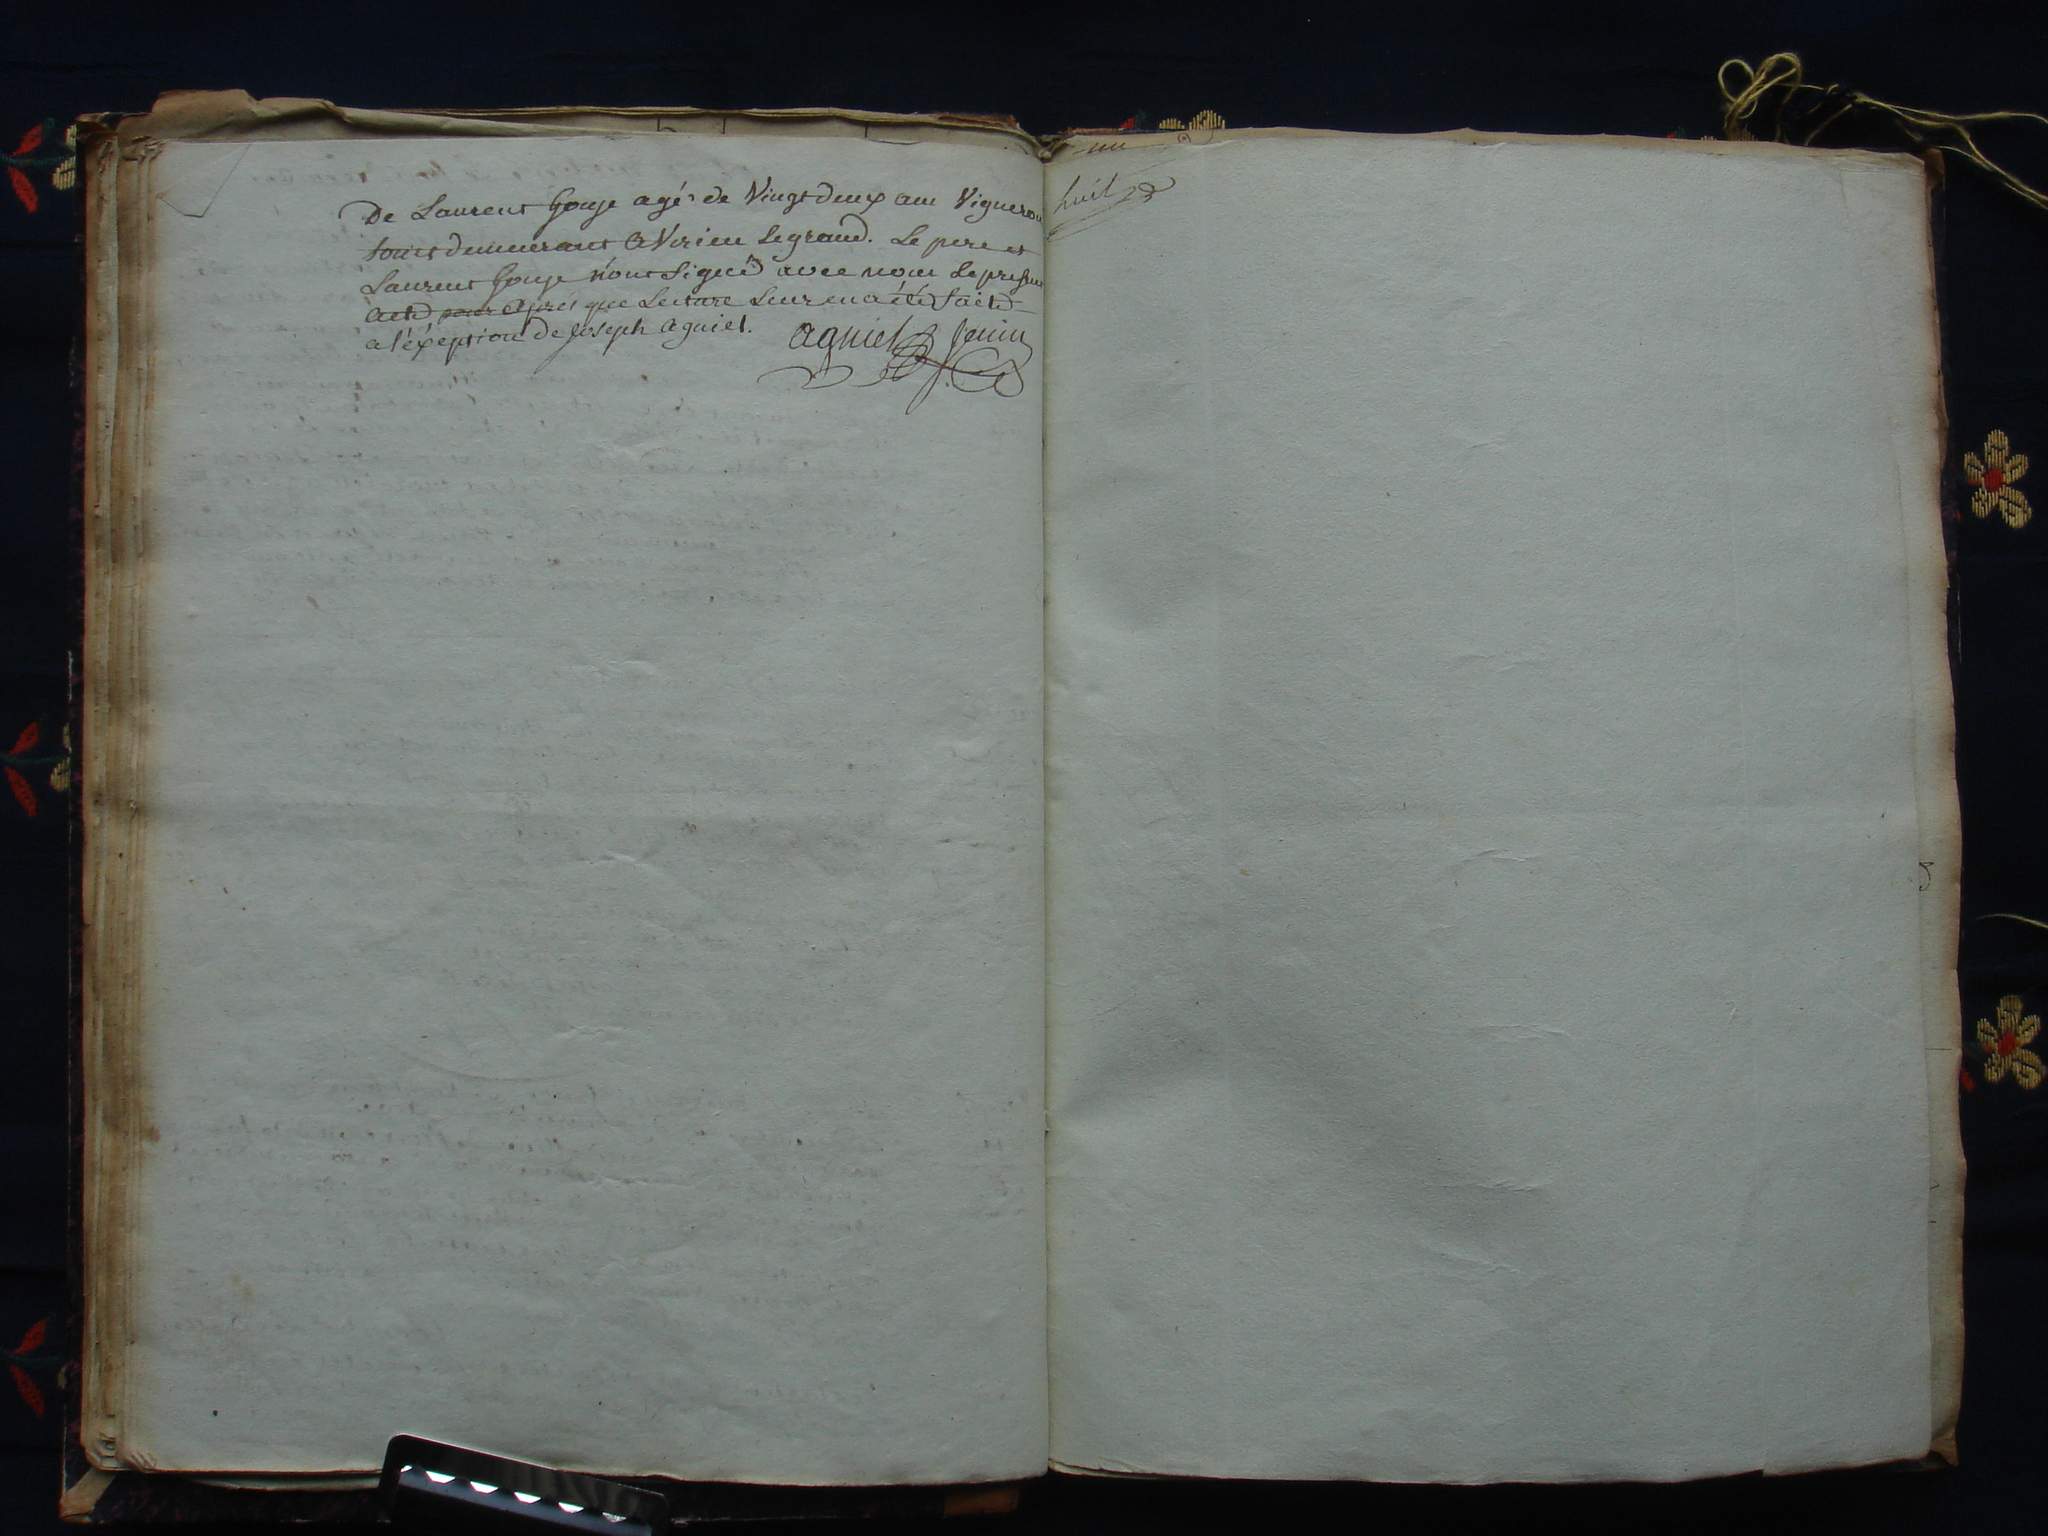 De Laurent Gouje agé de Vingt deux ans Vigneron
tous demeurant a Virieu Legrand. Le pere et
Laurent Gouje n'ont Signé avec nous Le present
acte pour apres que Lecture Leur en a été fait
a l'éxéption de Joseph agniel.
agniel
huit